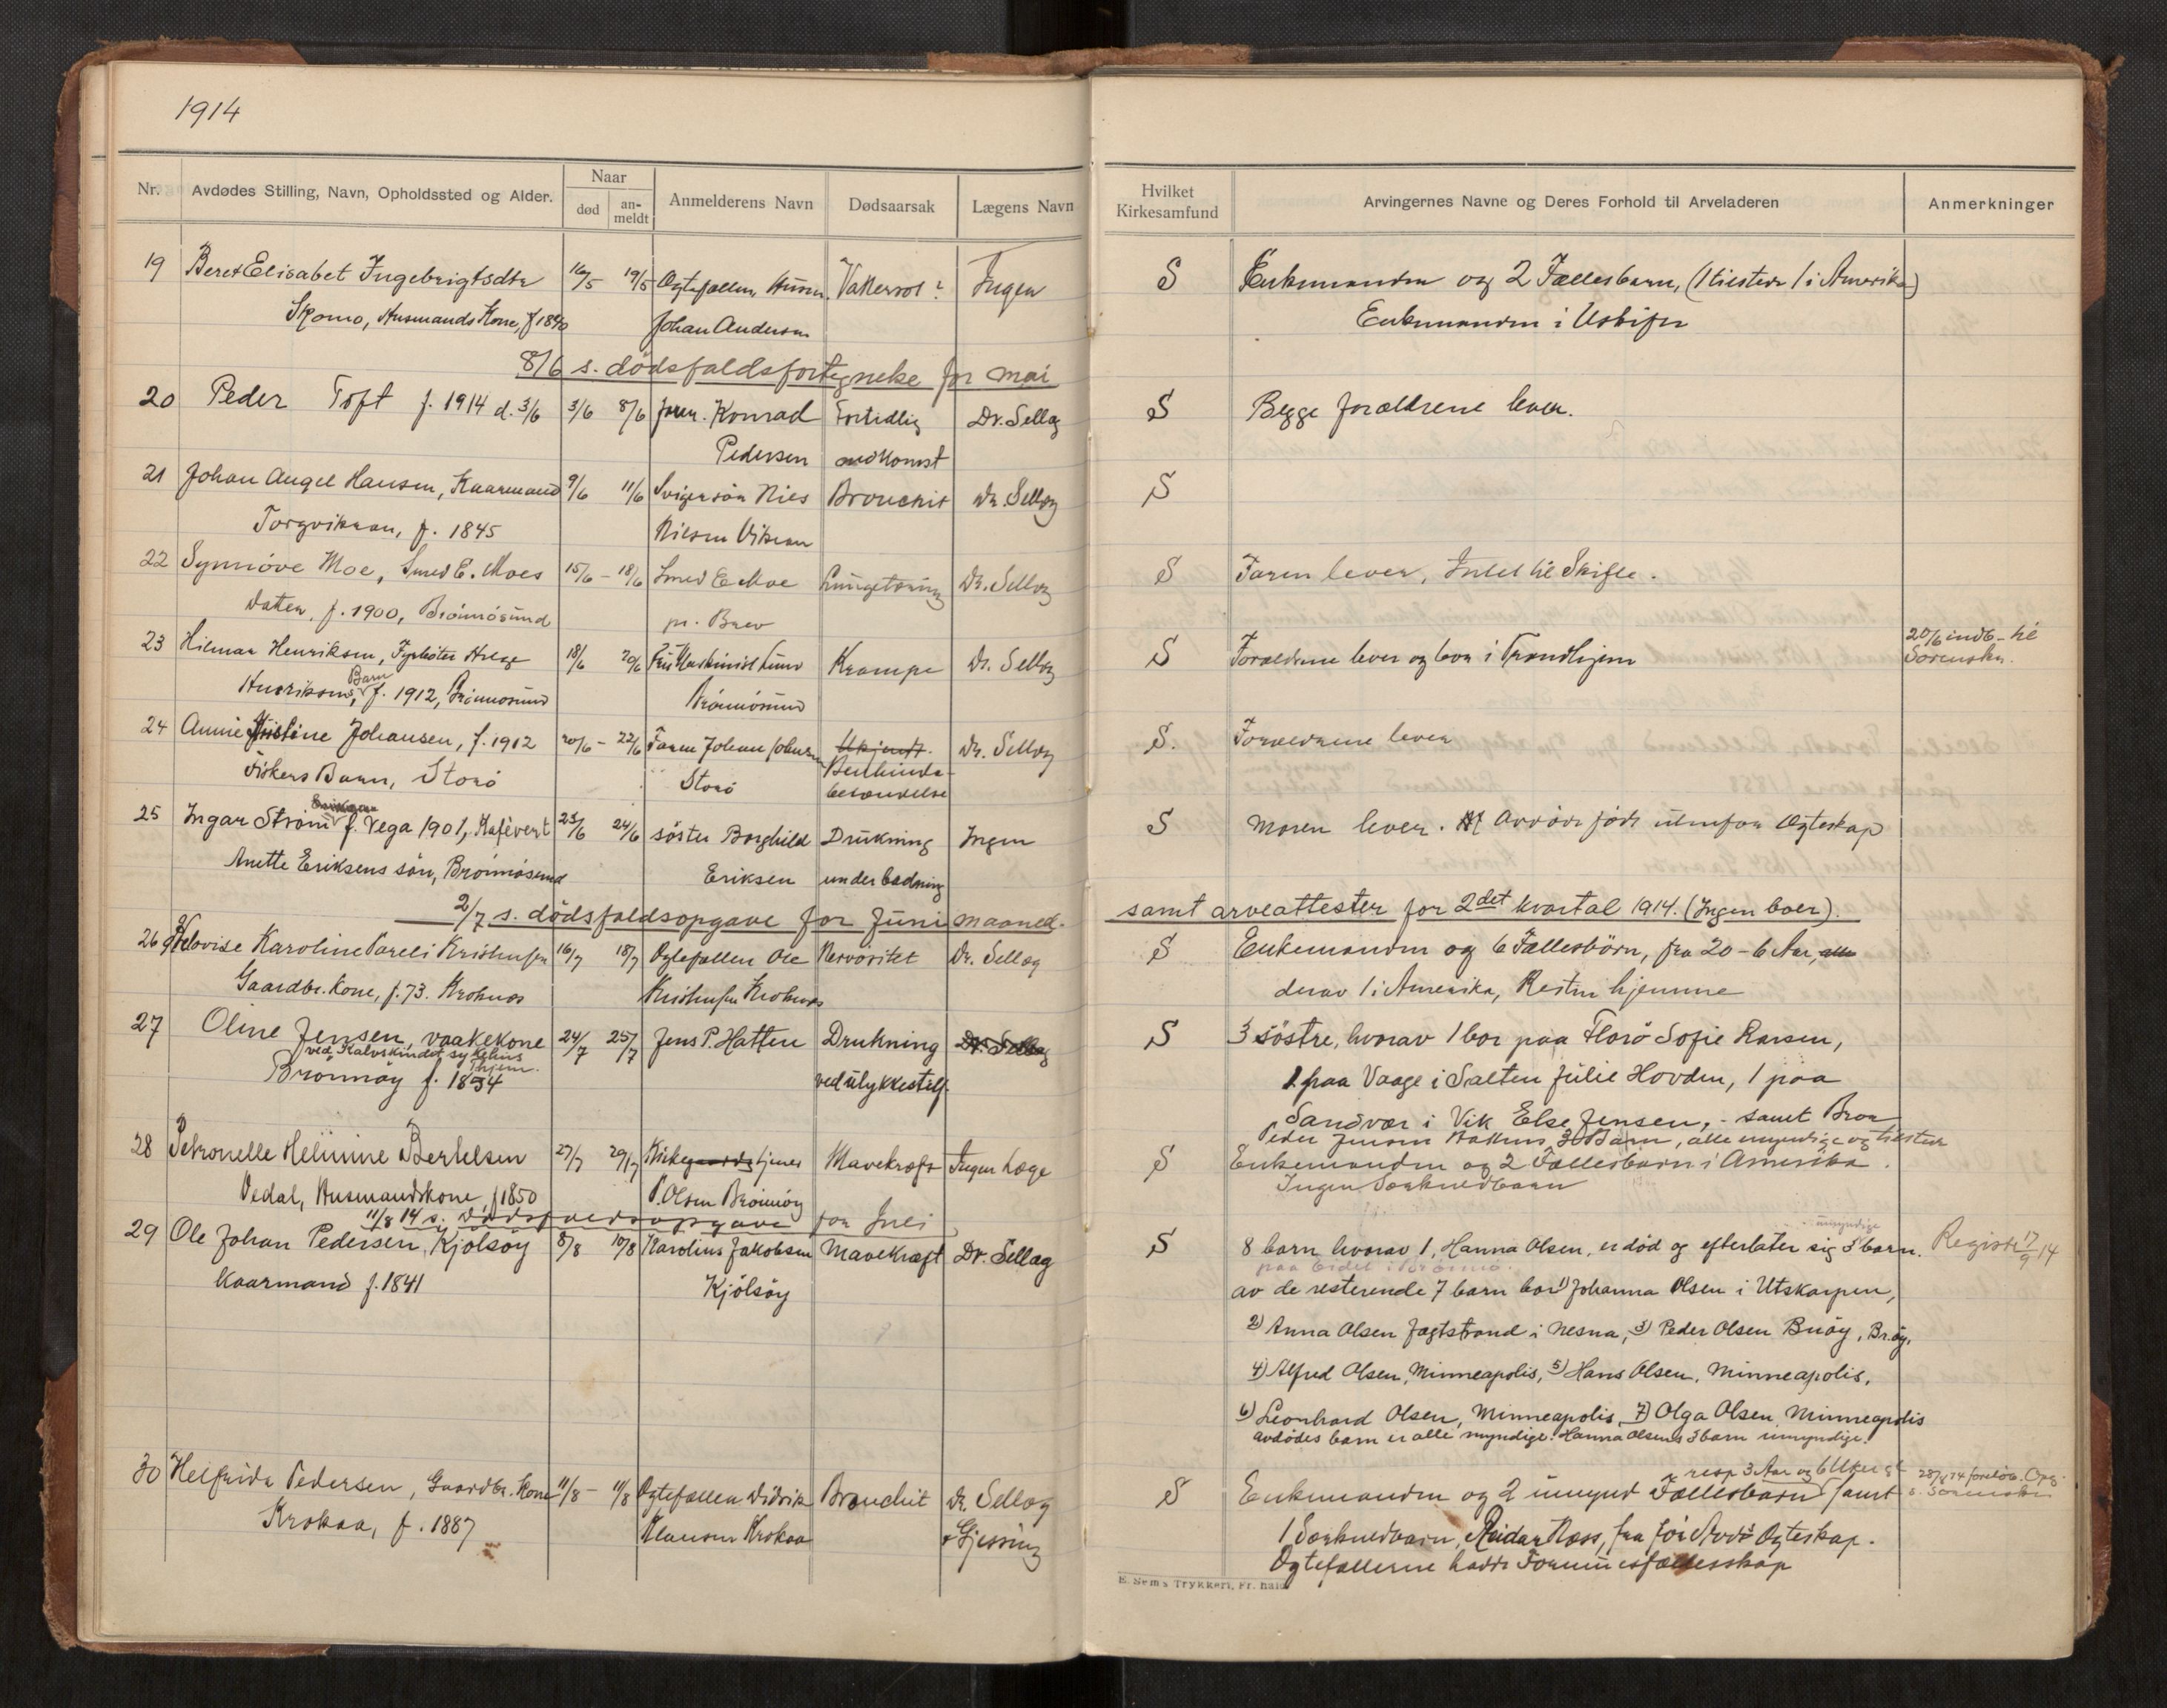 1914
Nr.
Avdødes Stilling, Navn, Opholdssted og Alder.
Naar
død
an-
meldt
Anmelderens Navn
Dødsaarsak
Lægens Navn
Hvilket
Kirkesamfund
Arvingernes Navne og Deres Forhold til Arveladeren
Anmerkninger
19 Beret Elisabet Ingebrigtsdtr 16/5 - 19/5 Ogtefællen, Husm. Ingen S Enkemanden og 2 Fællesbarn, (1 tilstede 1 i Amerika)
Skomo, Husmands Kone, f 1840 Johan Andersen Enkemanden i Uskifte
8/6 s. dödsfaldsfortegnelse for mai
20 Peder Toft f. 1914 d. 3/6 3/6 8/6 faren. Konrad Fortidlig Dr. Sellæg S Begge forældrene lever.
Pedersen nedkomst
21 Johan Angel Hansen, Kaarmand 9/6 11/6 Svigersön Nils Bronchit Dr. Sellæg S
Torgvikaan, f. 1845 Nilsen Vikran
22 Synnöve Moe, Smed E. Moes 15/6 - 18/6 Smed E Moe Lungetæring Dr. Sellæg S Faren lever, Intet til Skifte.
Datter, f. 1900, Brönnösund pr. Brev
23 Hilmar Henriksen, Fyrböter Helge 18/6 20/6 Fru Maskinist Krampe Dr. Sellæg S Forældrene lever og bor i Trondhjem 20/6 indb. til
Sorenskr.
Henriksens Barn, f. 1912, Brönnösund Brönnösund
24 Annie Kristine Johansen, f. 1912 20/6 - 22/6 Faren Johan Johansen Ukjendt. Dr. Sellæg S. Forældrene lever
Fiskers Barn, Storö Storö Benhinde-
betændelse
25 Ingar Ström f. Vega 1901, Kafévert 23/6 24/6 söster Borghild Drukning Ingen S Moren lever. Avdöde födt utenfor Ogteskap
Anette Eriksens sön, Brönnösund Eriksen under badning
2/7 s. dödsfaldsopgave for Juni maaned. samt arveattester for 2det kvartal 1914. (Ingen boer).
26 Hedvise Karoline Pareli Kristensen 16/7 18/7 Ogtefællen Ole Nervöritet Dr. Sellæg S Enkemanden og 6 Fællesbörn, fra 20-6 Aar, alle
Gaardbr. Kone, f. 73. Kroknes Kristensen Kroknes derav 1 i Amerika, Resten hjemme
27 Oline Jensen, vaakekone 24/7 25/7 Jens P. Hatten Drukning Dr. Sellæg S 3 söstre, hvorav 1 bor paa Florö Sofie Larsen,
ved Kalvskindet sykehus
Thjem.
Brönnöy f. 1854 ved ulykkestilf. 1 paa Vaage i Salten Julie Hovden, 1 paa
Sandvær i Vik Else Jensen, - samt Bror
Peder Jensen Barn, alle myndige og tilstede
28 Petronelle Helmine Bertelsen 27/7 29/7 Kirketjener Mavekræft Ingen Læge S Enkemanden og 2 Fællesbarn i Amerika.
Vedal, Husmandskone, f 1850 P. Olsen Brönnöy Ingen Særkuldbarn
11/8 14 s. Dödsfaldsopgave for Juli
29 Ole Johan Pedersen, Kjölsöy 8/8 10/8 Karolius Jakobsen Mavekræft Dr. Sellæg S 8 barn hvorav 1, Hanna Olsen, er död og efterlater sig 3 umyndige barn. Registr 17/9 14
Kaarmand f. 1841 Kjölsöy
av de resterende 7 barn bor 1) Johanna Olsen i Utskarpen,
2) Anna Olsen Jægtstrand i Nesna, 3) Peder Olsen Buöy, Br.öy,
4) Alfred Olsen, Minneapolis, 5) Hans Olsen, Minneapolis,
6) Leonhard Olsen, Minneapolis, 7) Olga Olsen Minneapolis
avdödes barn er alle myndige. Hanna Olsens 3 barn umyndige.
30 Helfrida Pedersen, Gaardbr. Kone 11/8 - 11/8 Ogtefællen Didrik Bronchit Dr. Sellæg S Enkemanden og 2 umynd Fællesbarn resp 3 Aar og 6 Uker samt 28/8 14 foreløb. Opg.
s. Sorenskr
Krokaa, f. 1887 Klausen Krokaa + Gjessing 1 Særkuldbarn, Reidar Næss, fra för Avd's Ogteskap.
Ogtefællerne hadde Formuesfællesskap
E. Sem's Trykkeri, Fr. hald